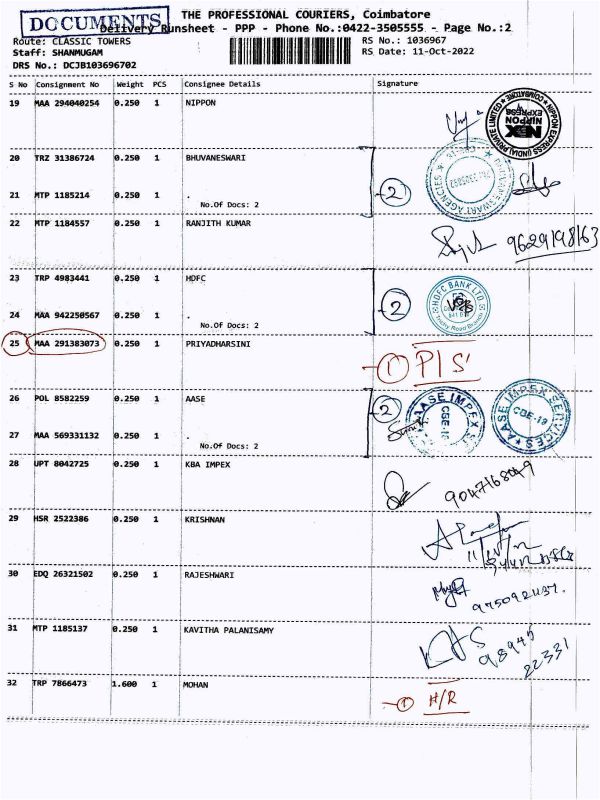 DOCUMENTS
THE PROFESSIONAL COURIERS, Coimbatore
Delivery Runsheet - PPP - Phone No.:0422-3505555 - Page No.:2
Route: CLASSIC TOWERS
RS No.: 1036967
Staff: SHANMUGAM
RS Date: 11-Oct-2022
DRS No.: DCJB103696702
S No Consignment No Weight PCS Consignee Details Signature
19 MAA 294040254 0.250 1 NIPPON
NIPPON EXPRESS (INDIA) PRIVATE LIMITED
COIMBATORE
NEX
NIPPON
EXPRESS
20 TRZ 31386724 0.250 1 BHUVANESWARI
2
21 MTP 1185214 0.250 1 .
No.Of Docs: 2
22 MTP 1184557 0.250 1 RANJITH KUMAR
9629198163
23 TRP 4983441 0.250 1 HDFC
HDFC BANK LTD
2
24 MAA 942250567 0.250 1 .
No.Of Docs: 2
25 MAA 291383073 0.250 1 PRIYADHARSINI
1 P/S
26 POL 8582259 0.250 1 AASE
2
AASE IMPEX SERVICES
CBE-18
27 MAA 569331132 0.250 1 .
No.Of Docs: 2
28 UPT 8042725 0.250 1 KBA IMPEX
9047168049
29 HSR 2522386 0.250 1 KRISHNAN
30 EDQ 26321502 0.250 1 RAJESHWARI
31 MTP 1185137 0.250 1 KAVITHA PALANISAMY
98945
22331
32 TRP 7866473 1.600 1 MOHAN
1 H/R